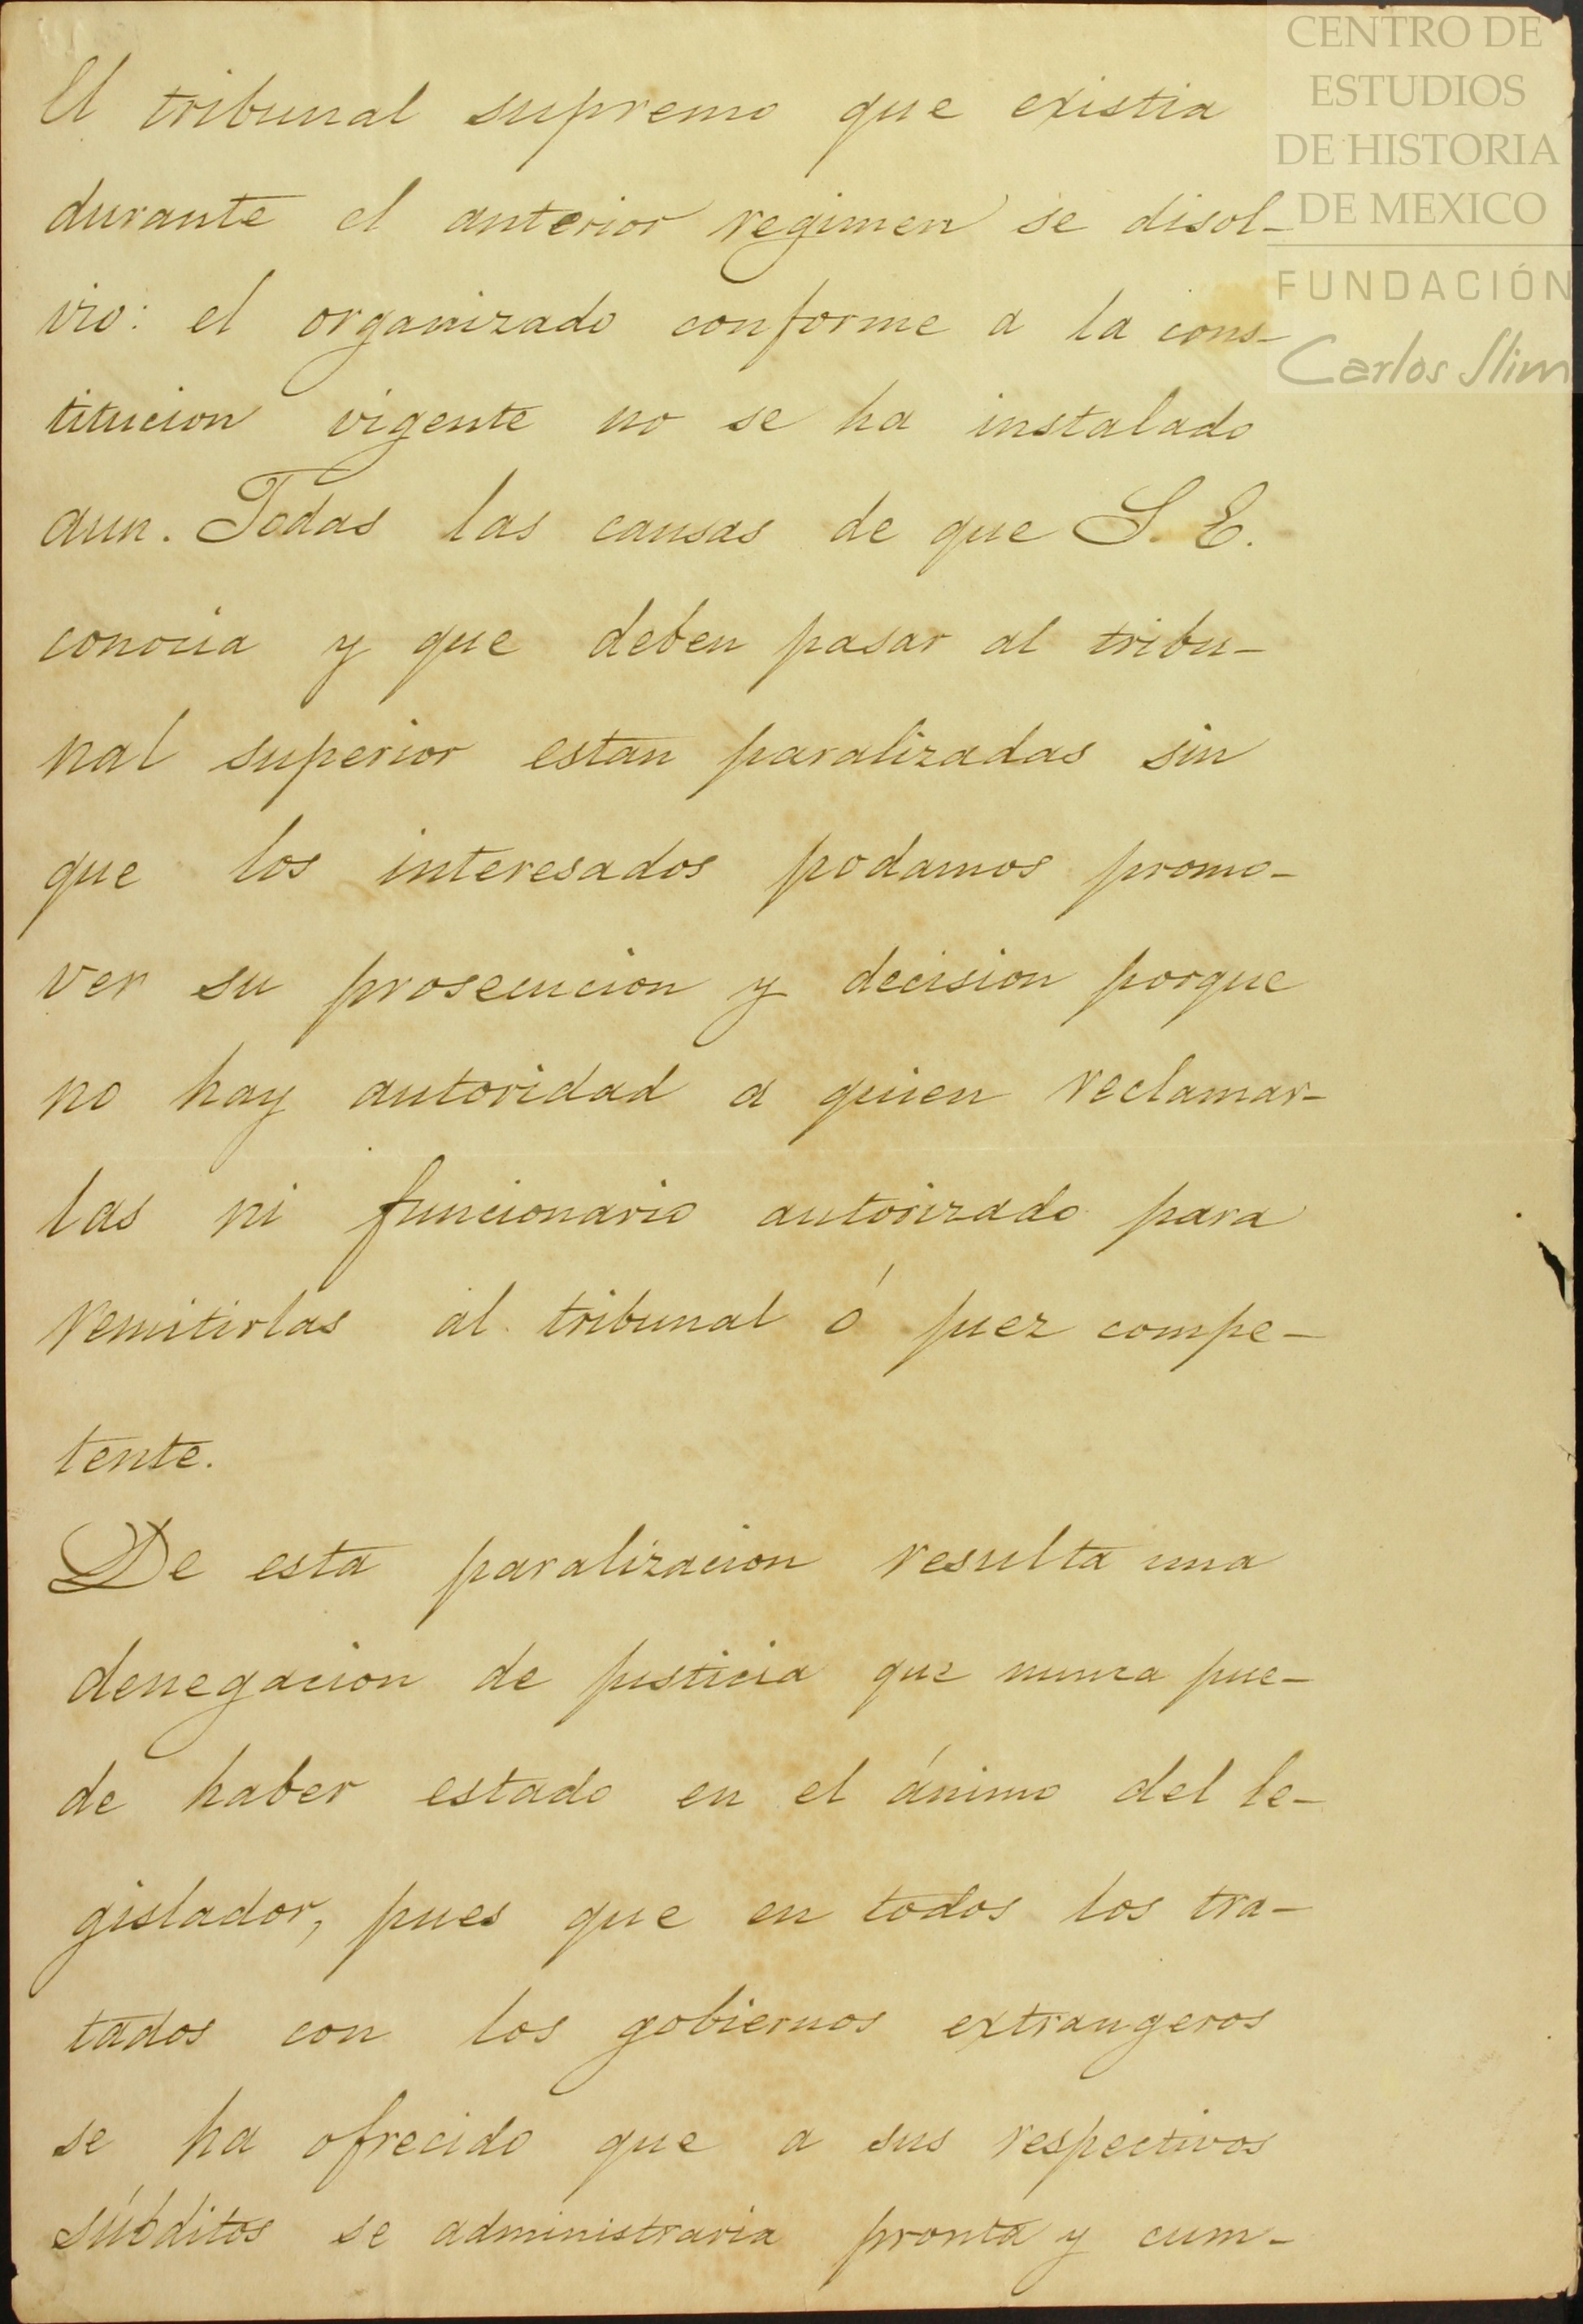 CENTRO DE
ESTUDIOS
DE HISTORIA
DE MEXICO
FUNDACIÓN
Carlos Slim
El tribunal supremo que existia
durante el anterior regimen se disol-
vio: el organizado conforme a la cons-
titucion vigente no se ha instalado
aun. Todas las causas de que S. E.
conocia y que deben pasar al tribu-
nal superior estan paralizadas sin
que los interesados podamos promo-
ver su prosecucion y decision porque
no hay autoridad a quien reclamar-
las ni funcionario autorizado para
remitirlas al tribunal ó juez compe-
tente.
De esta paralizacion resulta una
denegacion de justicia que nunca pue-
de haber estado en el ánimo del le-
gislador, pues que en todos los tra-
tados con los gobiernos extrangeros
se ha ofrecido que a sus respectivos
súbditos se administraria pronta y cum-